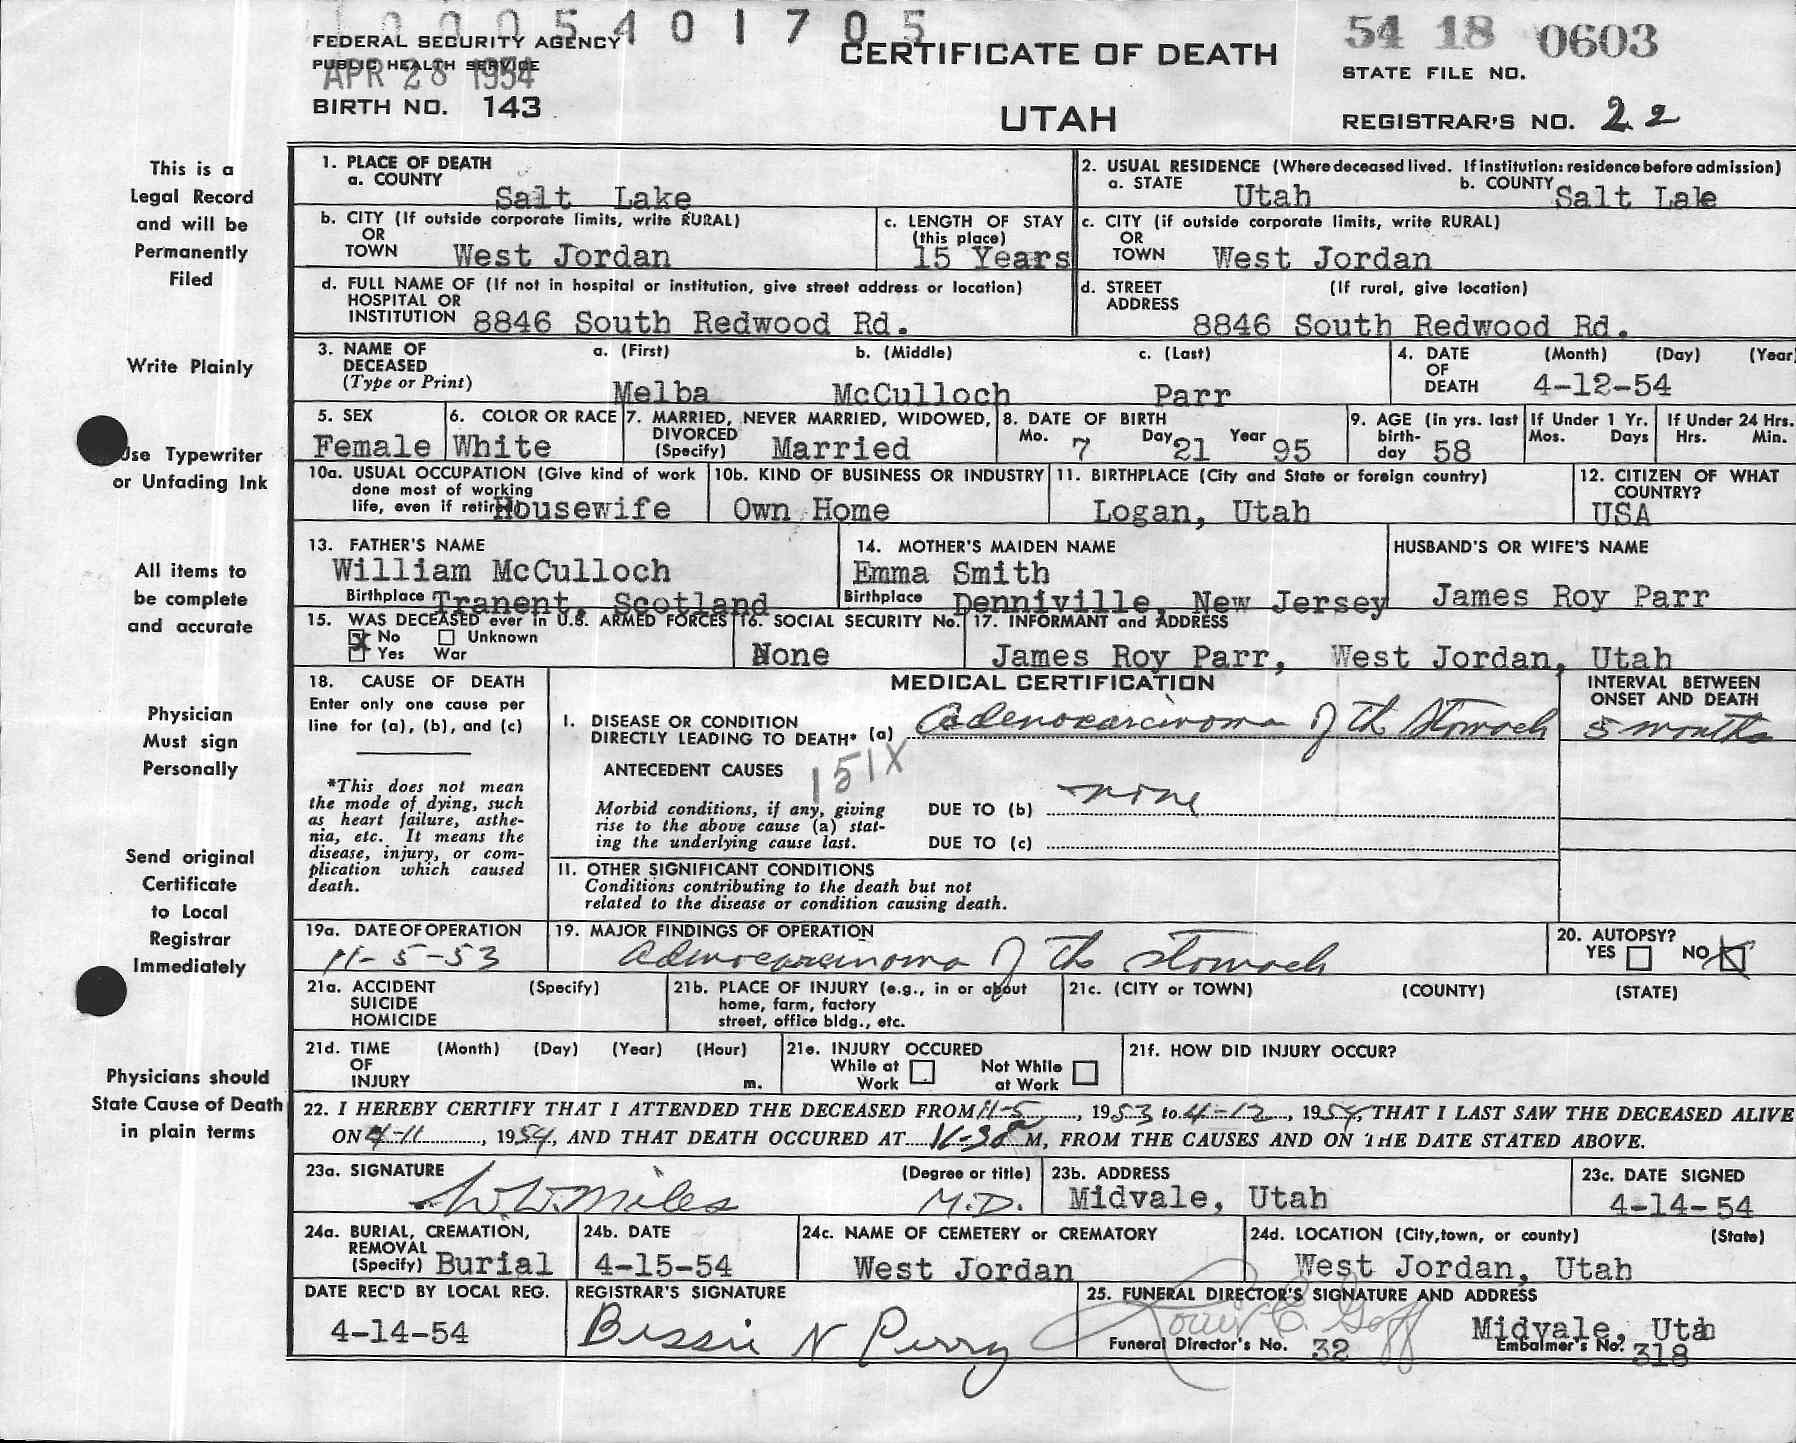 1000540 1705
FEDERAL SECURITY AGENCY
PUBLIC HEALTH SERVICE
APR 28 1954
BIRTH NO. 143
CERTIFICATE OF DEATH
UTAH
54 18 0603
STATE FILE NO.
REGISTRAR'S NO. 22
This is a
Legal Record
and will be
Permanently
Filed
Write Plainly
Use Typewriter
or Unfading Ink
All items to
be complete
and accurate
Physician
Must sign
Personally
Send original
Certificate
to Local
Registrar
Immediately
Physicians should
State Cause of Death
in plain terms
1. PLACE OF DEATH
a. COUNTY Salt Lake
2. USUAL RESIDENCE (Where deceased lived. If institution: residence before admission)
a. STATE Utah b. COUNTY Salt Lale
b. CITY (If outside corporate limits, write RURAL)
OR
TOWN West Jordan
c. LENGTH OF STAY
(this place)
15 Years
c. CITY (if outside corporate limits, write RURAL)
OR
TOWN West Jordan
d. FULL NAME OF (If not in hospital or institution, give street address or location)
HOSPITAL OR
INSTITUTION 8846 South Redwood Rd.
d. STREET (If rural, give location)
ADDRESS
8846 South Redwood Rd.
3. NAME OF a. (First) b. (Middle) c. (Last)
DECEASED
(Type or Print)
Melba McCulloch Parr
4. DATE (Month) (Day) (Year
OF
DEATH 4-12-54
5. SEX
Female
6. COLOR OR RACE
White
7. MARRIED, NEVER MARRIED, WIDOWED,
DIVORCED
(Specify) Married
8. DATE OF BIRTH
Mo. 7 Day 21 Year 95
9. AGE (in yrs. last
birth-
day 58
If Under 1 Yr.
Mos. Days
If Under 24 Hrs.
Hrs. Min.
10a. USUAL OCCUPATION (Give kind of work
done most of working
life, even if retired Housewife
10b. KIND OF BUSINESS OR INDUSTRY
Own Home
11. BIRTHPLACE (City and State or foreign country)
Logan, Utah
12. CITIZEN OF WHAT
COUNTRY?
USA
13. FATHER'S NAME
William McCulloch
Birthplace Tranent, Scotland
14. MOTHER'S MAIDEN NAME
Emma Smith
Birthplace Denniville, New Jersey
HUSBAND'S OR WIFE'S NAME
James Roy Parr
15. WAS DECEASED ever in U.S. ARMED FORCES
No Unknown
Yes War
16. SOCIAL SECURITY No.
None
17. INFORMANT and ADDRESS
James Roy Parr, West Jordan, Utah
18. CAUSE OF DEATH
Enter only one cause per
line for (a), (b), and (c)
*This does not mean
the mode of dying, such
as heart failure, asthe-
nia, etc. It means the
disease, injury, or com-
plication which caused
death.
MEDICAL CERTIFICATION
INTERVAL BETWEEN
ONSET AND DEATH
I. DISEASE OR CONDITION
DIRECTLY LEADING TO DEATH* (a) Adenocarcinoma of the Stomach 5 months
ANTECEDENT CAUSES 151X
Morbid conditions, if any, giving
rise to the above cause (a) stat-
ing the underlying cause last.
DUE TO (b) none
DUE TO (c)
11. OTHER SIGNIFICANT CONDITIONS
Conditions contributing to the death but not
related to the disease or condition causing death.
19a. DATE OF OPERATION
11-5-53
19. MAJOR FINDINGS OF OPERATION
Adenocarcinoma of the stomach
20. AUTOPSY?
YES NO X
21a. ACCIDENT (Specify)
SUICIDE
HOMICIDE
21b. PLACE OF INJURY (e.g., in or about
home, farm, factory
street, office bldg., etc.
21c. (CITY or TOWN) (COUNTY) (STATE)
21d. TIME (Month) (Day) (Year) (Hour)
OF
INJURY m.
21e. INJURY OCCURED
While at Not While
Work at Work
21f. HOW DID INJURY OCCUR?
22. I HEREBY CERTIFY THAT I ATTENDED THE DECEASED FROM 11-5, 1953 to 4-12, 1954, THAT I LAST SAW THE DECEASED ALIVE
ON 4-11, 1954, AND THAT DEATH OCCURED AT 11-30 a M, FROM THE CAUSES AND ON THE DATE STATED ABOVE.
23a. SIGNATURE (Degree or title)
W. W. Miles M.D.
23b. ADDRESS
Midvale, Utah
23c. DATE SIGNED
4-14-54
24a. BURIAL, CREMATION,
REMOVAL
(Specify) Burial
24b. DATE
4-15-54
24c. NAME OF CEMETERY or CREMATORY
West Jordan
24d. LOCATION (City, town, or county) (State)
West Jordan, Utah
DATE REC'D BY LOCAL REG.
4-14-54
REGISTRAR'S SIGNATURE
Bessie N Perry
25. FUNERAL DIRECTOR'S SIGNATURE AND ADDRESS
Louis E. Goff Midvale, Utah
Funeral Director's No. 32 Embalmer's No. 318